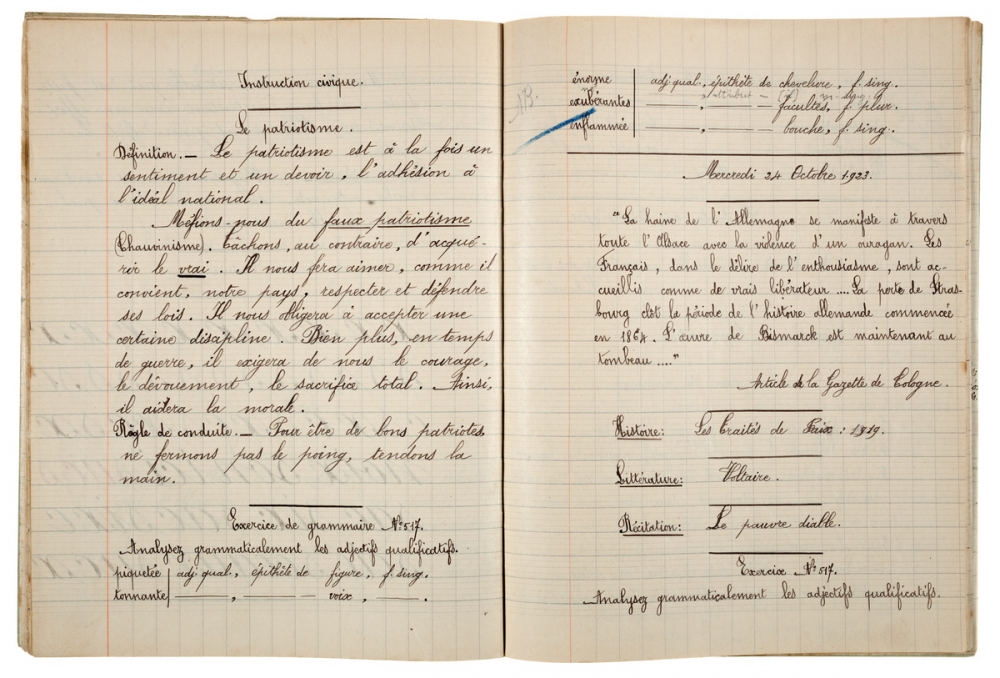 Instruction civique.
Le patriotisme.
Définition. — Le patriotisme est à la fois un
sentiment et un devoir, l'adhésion à
l'idéal national.
Méfions-nous du faux patriotisme
(Chauvinisme). Tâchons, au contraire, d'acqué-
rir le vrai. Il nous fera aimer, comme il
convient, notre pays, respecter et défendre
ses lois. Il nous obligera à accepter une
certaine discipline. Bien plus, en temps
de guerre, il exigera de nous le courage,
le dévouement, le sacrifice total. Ainsi,
il aidera la morale.
Règle de conduite. — Pour être de bons patriotes,
ne fermons pas le poing, tendons la
main.
Exercice de grammaire N° 517.
Analysez grammaticalement les adjectifs qualificatifs.
piquetée adj. qual., épithète de figure, f. sing.
tonnante ——, —— — voix, ——.
énorme adj. qual., épithète de chevelure, f. sing.
exubérantes ——, —— — facultés, f. plur.
enflammée ——, —— — bouche, f. sing.
Mercredi 24 Octobre 1923.
"La haine de l'Allemagne se manifeste à travers
toute l'Alsace avec la violence d'un ouragan. Les
Français, dans le délire de l'enthousiasme, sont ac-
cueillis comme de vrais libérateur.... La porte de Stras-
bourg clôt la période de l'histoire allemande commencée
en 1864. L'œuvre de Bismarck est maintenant au
tombeau...."
Article de la Gazette de Cologne.
Histoire: Les Traités de Paix: 1919.
Littérature: Voltaire.
Récitation: Le pauvre diable.
Exercice N° 517.
Analysez grammaticalement les adjectifs qualificatifs.